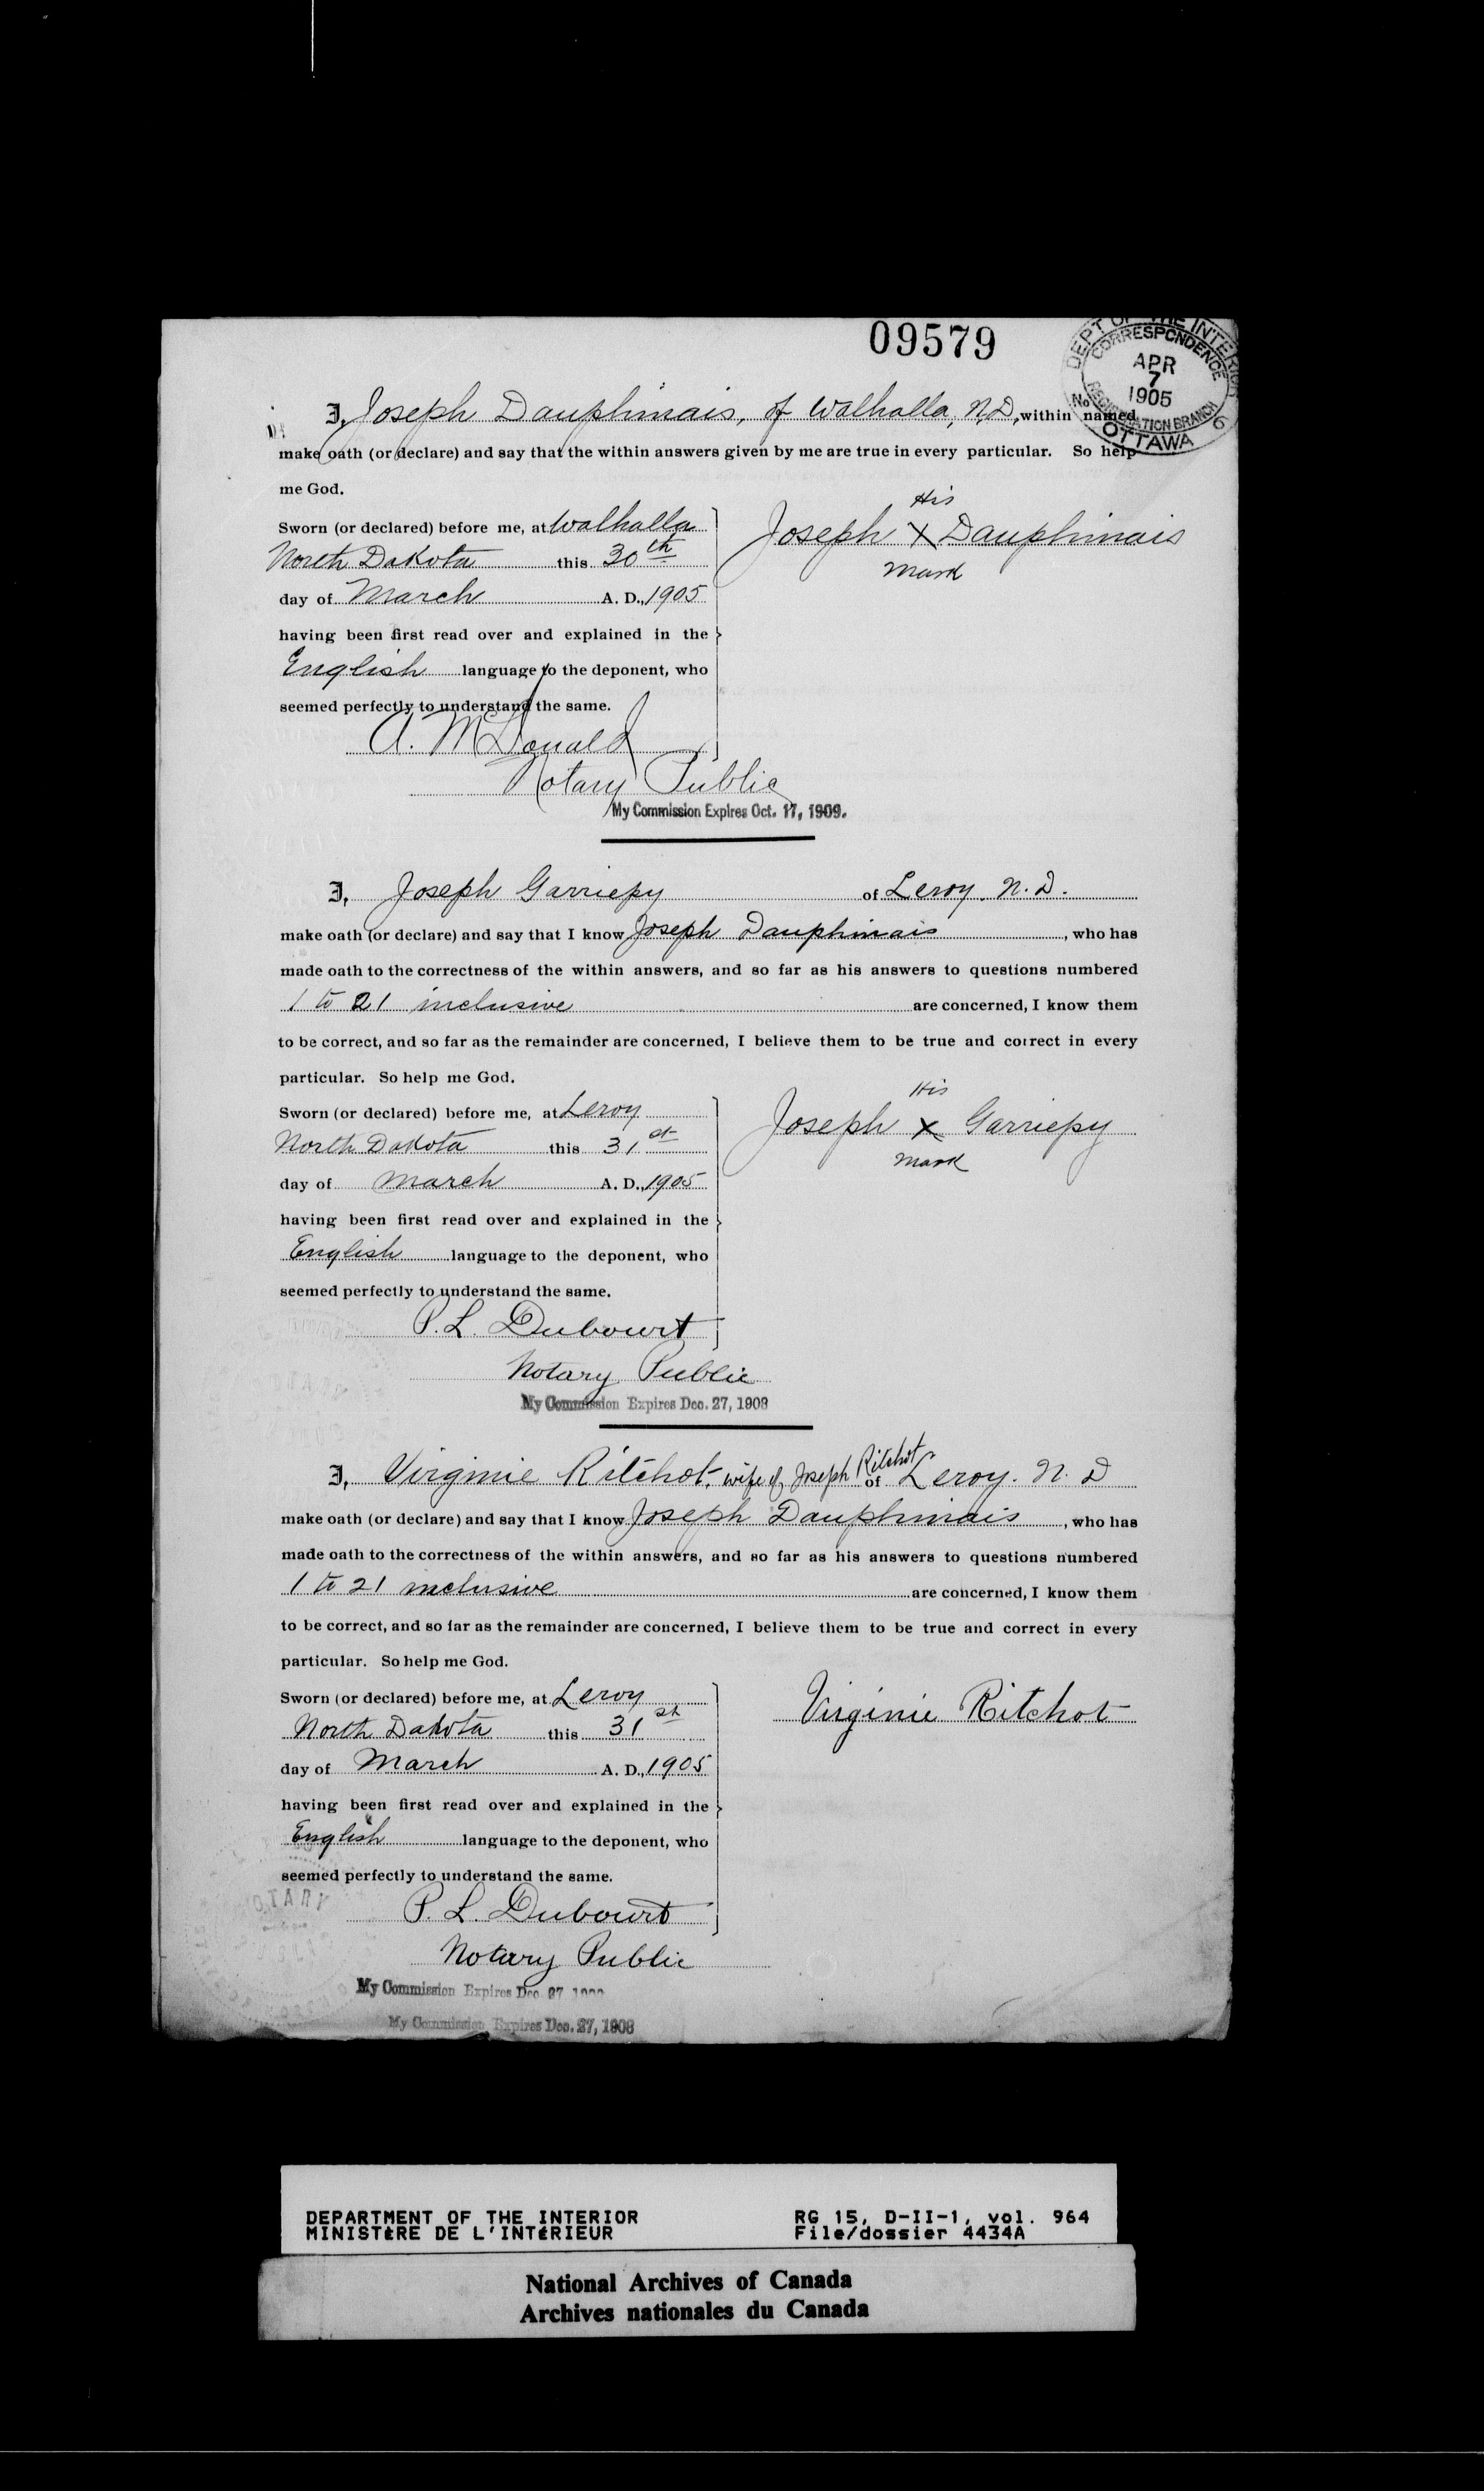 09579
DEPT OF THE INTERIOR
CORRESPONDENCE
APR
7
1905
No 6
REGISTRATION BRANCH
OTTAWA
I, Joseph Dauphinais, of Walhalla, N.D., within named
make oath (or declare) and say that the within answers given by me are true in every particular. So help
me God.
His
Sworn (or declared) before me, at Walhalla
Joseph X Dauphinais
North Dakota this 30th
mark
day of March A. D., 1905
having been first read over and explained in the
English language to the deponent, who
seemed perfectly to understand the same.
A. McDonald
Notary Public
My Commission Expires Oct. 17, 1909.
I, Joseph Garriepy of Leroy. N. D.
make oath (or declare) and say that I know Joseph Dauphinais, who has
made oath to the correctness of the within answers, and so far as his answers to questions numbered
1 to 21 inclusive are concerned, I know them
to be correct, and so far as the remainder are concerned, I believe them to be true and correct in every
particular. So help me God.
His
Sworn (or declared) before me, at Leroy
Joseph X Garriepy
North Dakota this 31st
mark
day of March A. D., 1905
having been first read over and explained in the
English language to the deponent, who
seemed perfectly to understand the same.
P. L. Dubourt
Notary Public
My Commission Expires Dec. 27, 1908
I, Virginie Ritchot, wife of Joseph Ritchot of Leroy. N. D
make oath (or declare) and say that I know Joseph Dauphinais, who has
made oath to the correctness of the within answers, and so far as his answers to questions numbered
1 to 21 inclusive are concerned, I know them
to be correct, and so far as the remainder are concerned, I believe them to be true and correct in every
particular. So help me God.
Sworn (or declared) before me, at Leroy
Virginie Ritchot
North Dakota this 31st
day of March A. D., 1905
having been first read over and explained in the
English language to the deponent, who
seemed perfectly to understand the same.
P. L. Dubourt
Notary Public
My Commission Expires Dec. 27
My Commission Expires Dec. 27, 1908
NOTARY
DEPARTMENT OF THE INTERIOR
MINISTÈRE DE L'INTÉRIEUR
RG 15, D-II-1, vol. 964
File/dossier 4434A
National Archives of Canada
Archives nationales du Canada